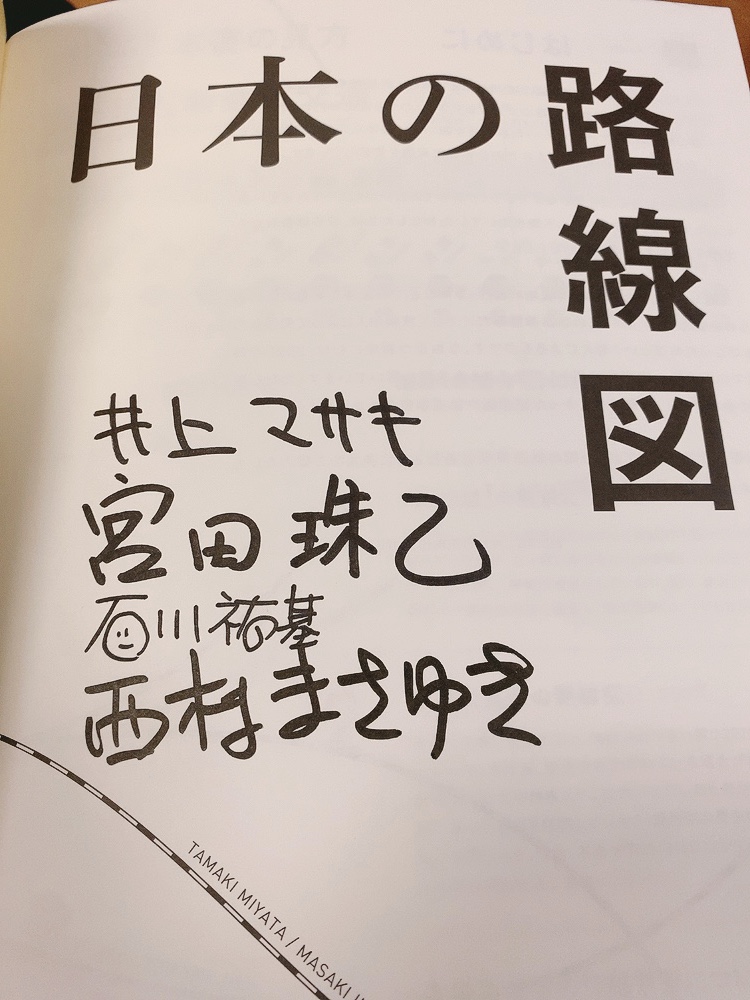 日本の路線図
井上マサキ
宮田珠己
石川祐基
西村まさゆき
TAMAKI MIYATA / MASAKI